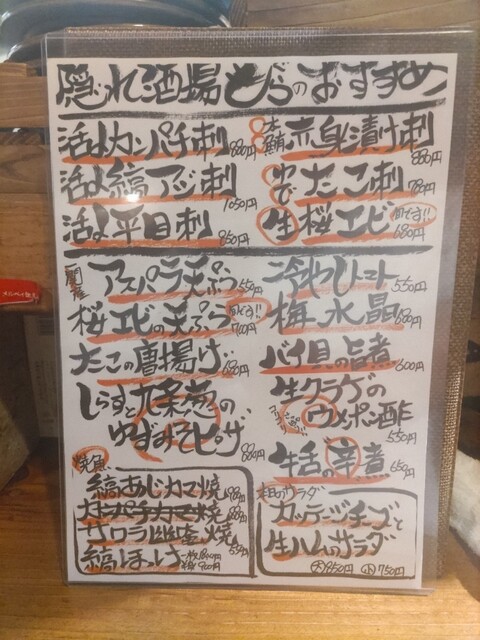 隠れ酒場とらのおすすめ
活〆カンパチ刺 880円
活〆縞アジ刺 1050円
活〆平目刺 850円
本鮪赤身漬け刺 880円
ゆでたこ刺 780円
生桜エビ 旬です!! 680円
アスパラ天ぷら 550円
桜エビの天ぷら 旬です!! 700円
たこの唐揚げ 680円
しらすと九条葱の
ゆずみそピザ 880円
冷やしトマト 550円
梅水晶 680円
バイ貝の旨煮 600円
生クラゲの
ウメポン酢 550円
牛舌の辛煮 650円
焼魚
縞あじカマ焼
カンパチカマ焼
サワラ幽庵焼
縞ほっけ
サラダ
カッテージチーズと
生ハムのサラダ
大 950円 小 750円